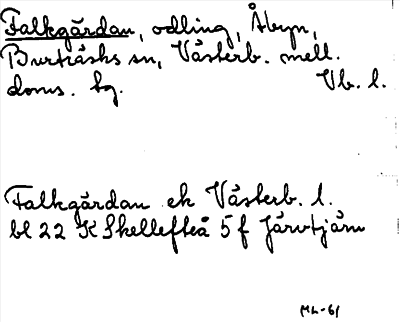 Falkgärdan, odling, Åbyn,
Burträsks sn, Västerb. mell.
doms. tg. Vb. l.
Falkgärdan ek Västerb. l.
bl 22 K Skellefteå 5 f Järvtjärn
ML-61